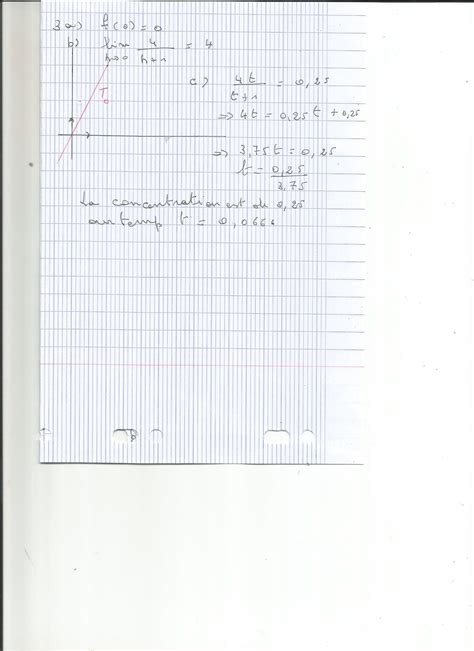 3 a) f(0) = 0
b) lim 4/(h+1) = 4
h→0
T0
c) 4t/(t+1) = 0,25
=> 4t = 0,25t + 0,25
=> 3,75t = 0,25
t = 0,25/3,75
La concentration est de 0,25
au temp t = 0,0666